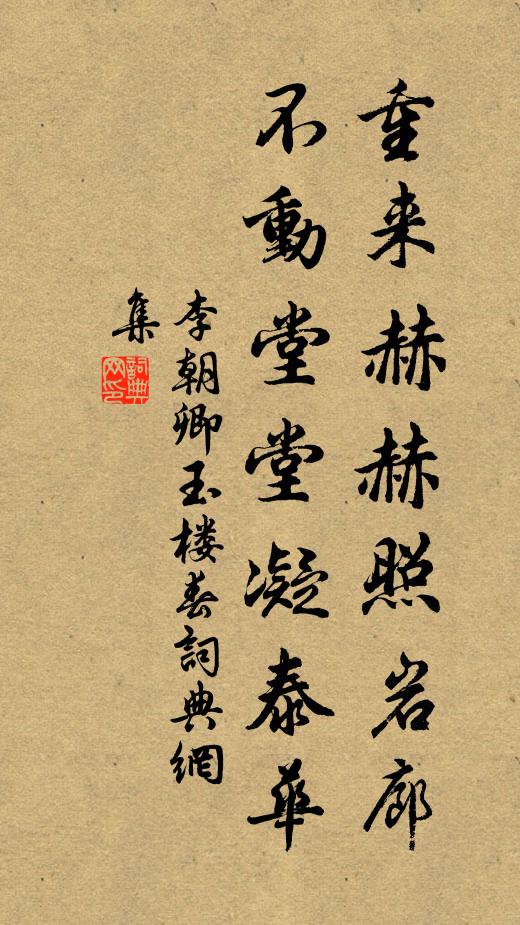 重来赫赫照岩廊
不動堂堂凝泰華
李朝卿玉楼春詞典網
集
詞典网印